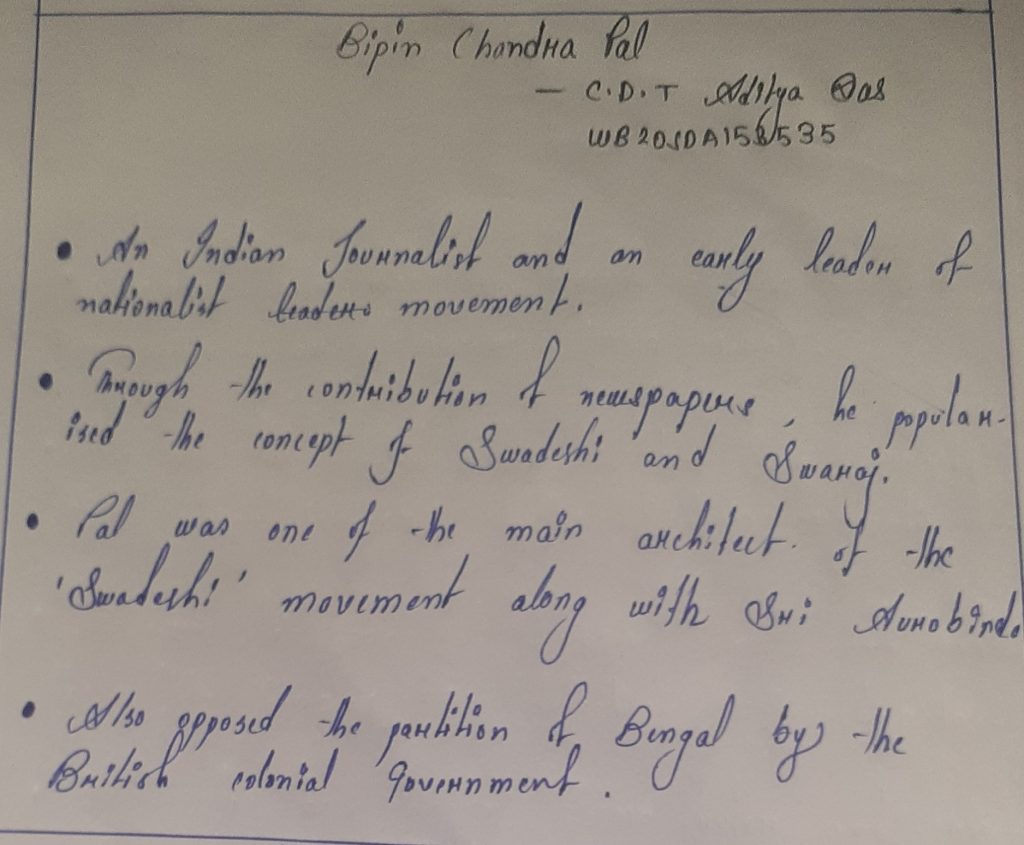 Bipin Chandra Pal
— C.D.T Aditya Das
WB20SDA156535
• An Indian Journalist and an early leader of
nationalist leaders movement.
• Through the contribution of newspapers, he popular-
ised the concept of Swadeshi and Swaraj.
• Pal was one of the main architect. of the
'Swadeshi' movement along with Sri Aurobindo
• Also opposed the partition of Bengal by the
British colonial Government.